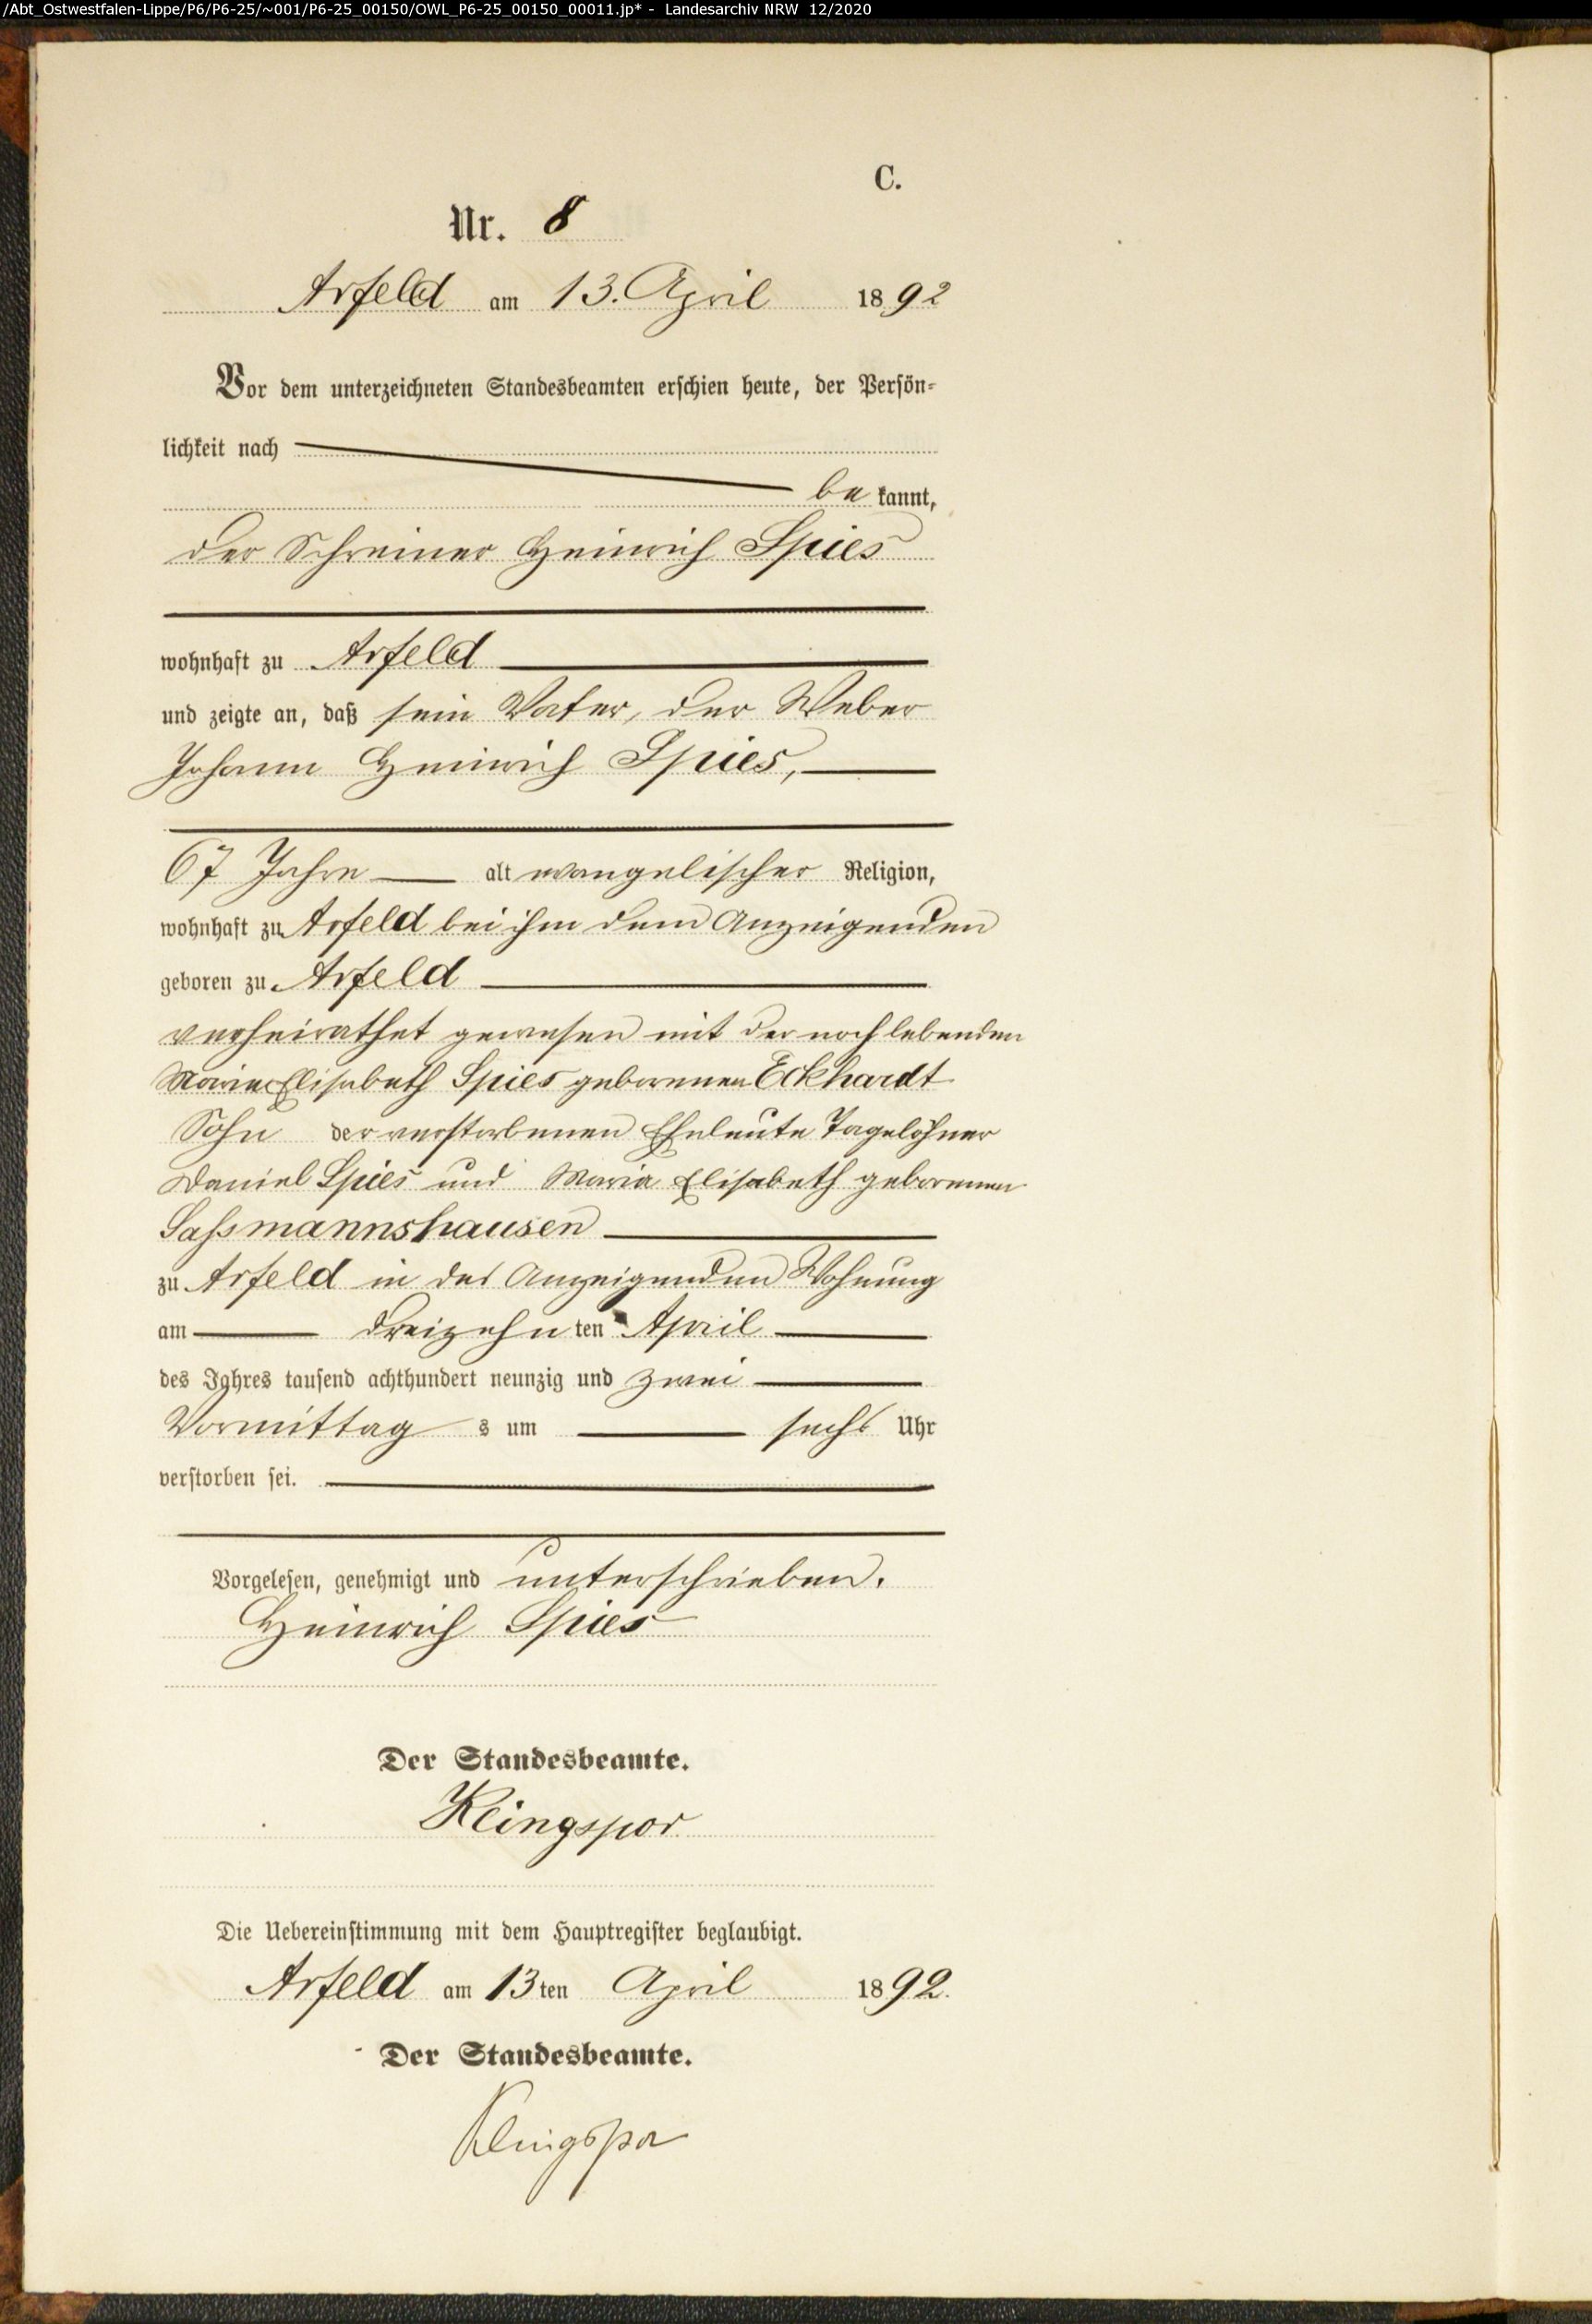 /Abt_Ostwestfalen-Lippe/P6/P6-25/~001/P6-25_00150/OWL_P6-25_00150_00011.jp* - Landesarchiv NRW 12/2020
C.
Nr. 8
Arfeld am 13. April 1892
Vor dem unterzeichneten Standesbeamten erschien heute, der Persön-
lichkeit nach
be kannt,
der Schreiner Heinrich Spies
wohnhaft zu Arfeld
und zeigte an, daß sein Vater, der Weber
Johann Heinrich Spies,
67 Jahre alt evangelischer Religion,
wohnhaft zu Arfeld bei ihm dem Anzeigenden
geboren zu Arfeld
verheirathet gewesen mit der noch lebenden
Maria Elisabeth Spies geborenen Eckhardt
Sohn der verstorbenen Eheleute Tagelöhner
Daniel Spies und Maria Elisabeth geborenen
Sassmannshausen
zu Arfeld in des Anzeigenden Wohnung
am dreizehn ten April
des Jahres tausend achthundert neunzig und zwei
Vormittag s um sechs Uhr
verstorben sei.
Vorgelesen, genehmigt und unterschrieben.
Heinrich Spies
Der Standesbeamte.
Klingspor
Die Uebereinstimmung mit dem Hauptregister beglaubigt.
Arfeld am 13ten April 1892.
Der Standesbeamte.
Klingspor